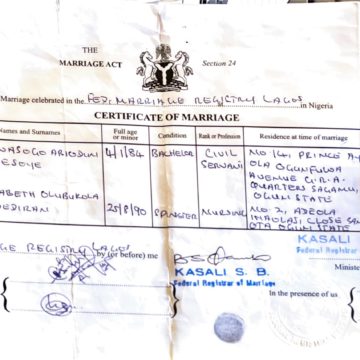 THE
MARRIAGE ACT
Section 24
Marriage celebrated in the FED. MARRIAGE REGISTRY LAGOS in Nigeria
CERTIFICATE OF MARRIAGE
Names and Surnames Full age or minor Condition Rank or Profession Residence at time of marriage
4/1/84 BACHELOR CIVIL SERVANT NO 14, PRINCE
OLA OGUNFUWA
AVENUE G.R.A.
QUARTERS SAGAMU,
OGUN STATE
ABETH OLUBUKOLA
EDIRAN 25/8/90 SPINSTER NURSING NO 2, ADEOLA
CLOSE
OTA OGUN STATE
GE REGISTRY LAGOS
by (or before) me
KASALI
Federal Registrar
KASALI S. B.
Federal Registrar of Marriage
Minist
In the presence of us